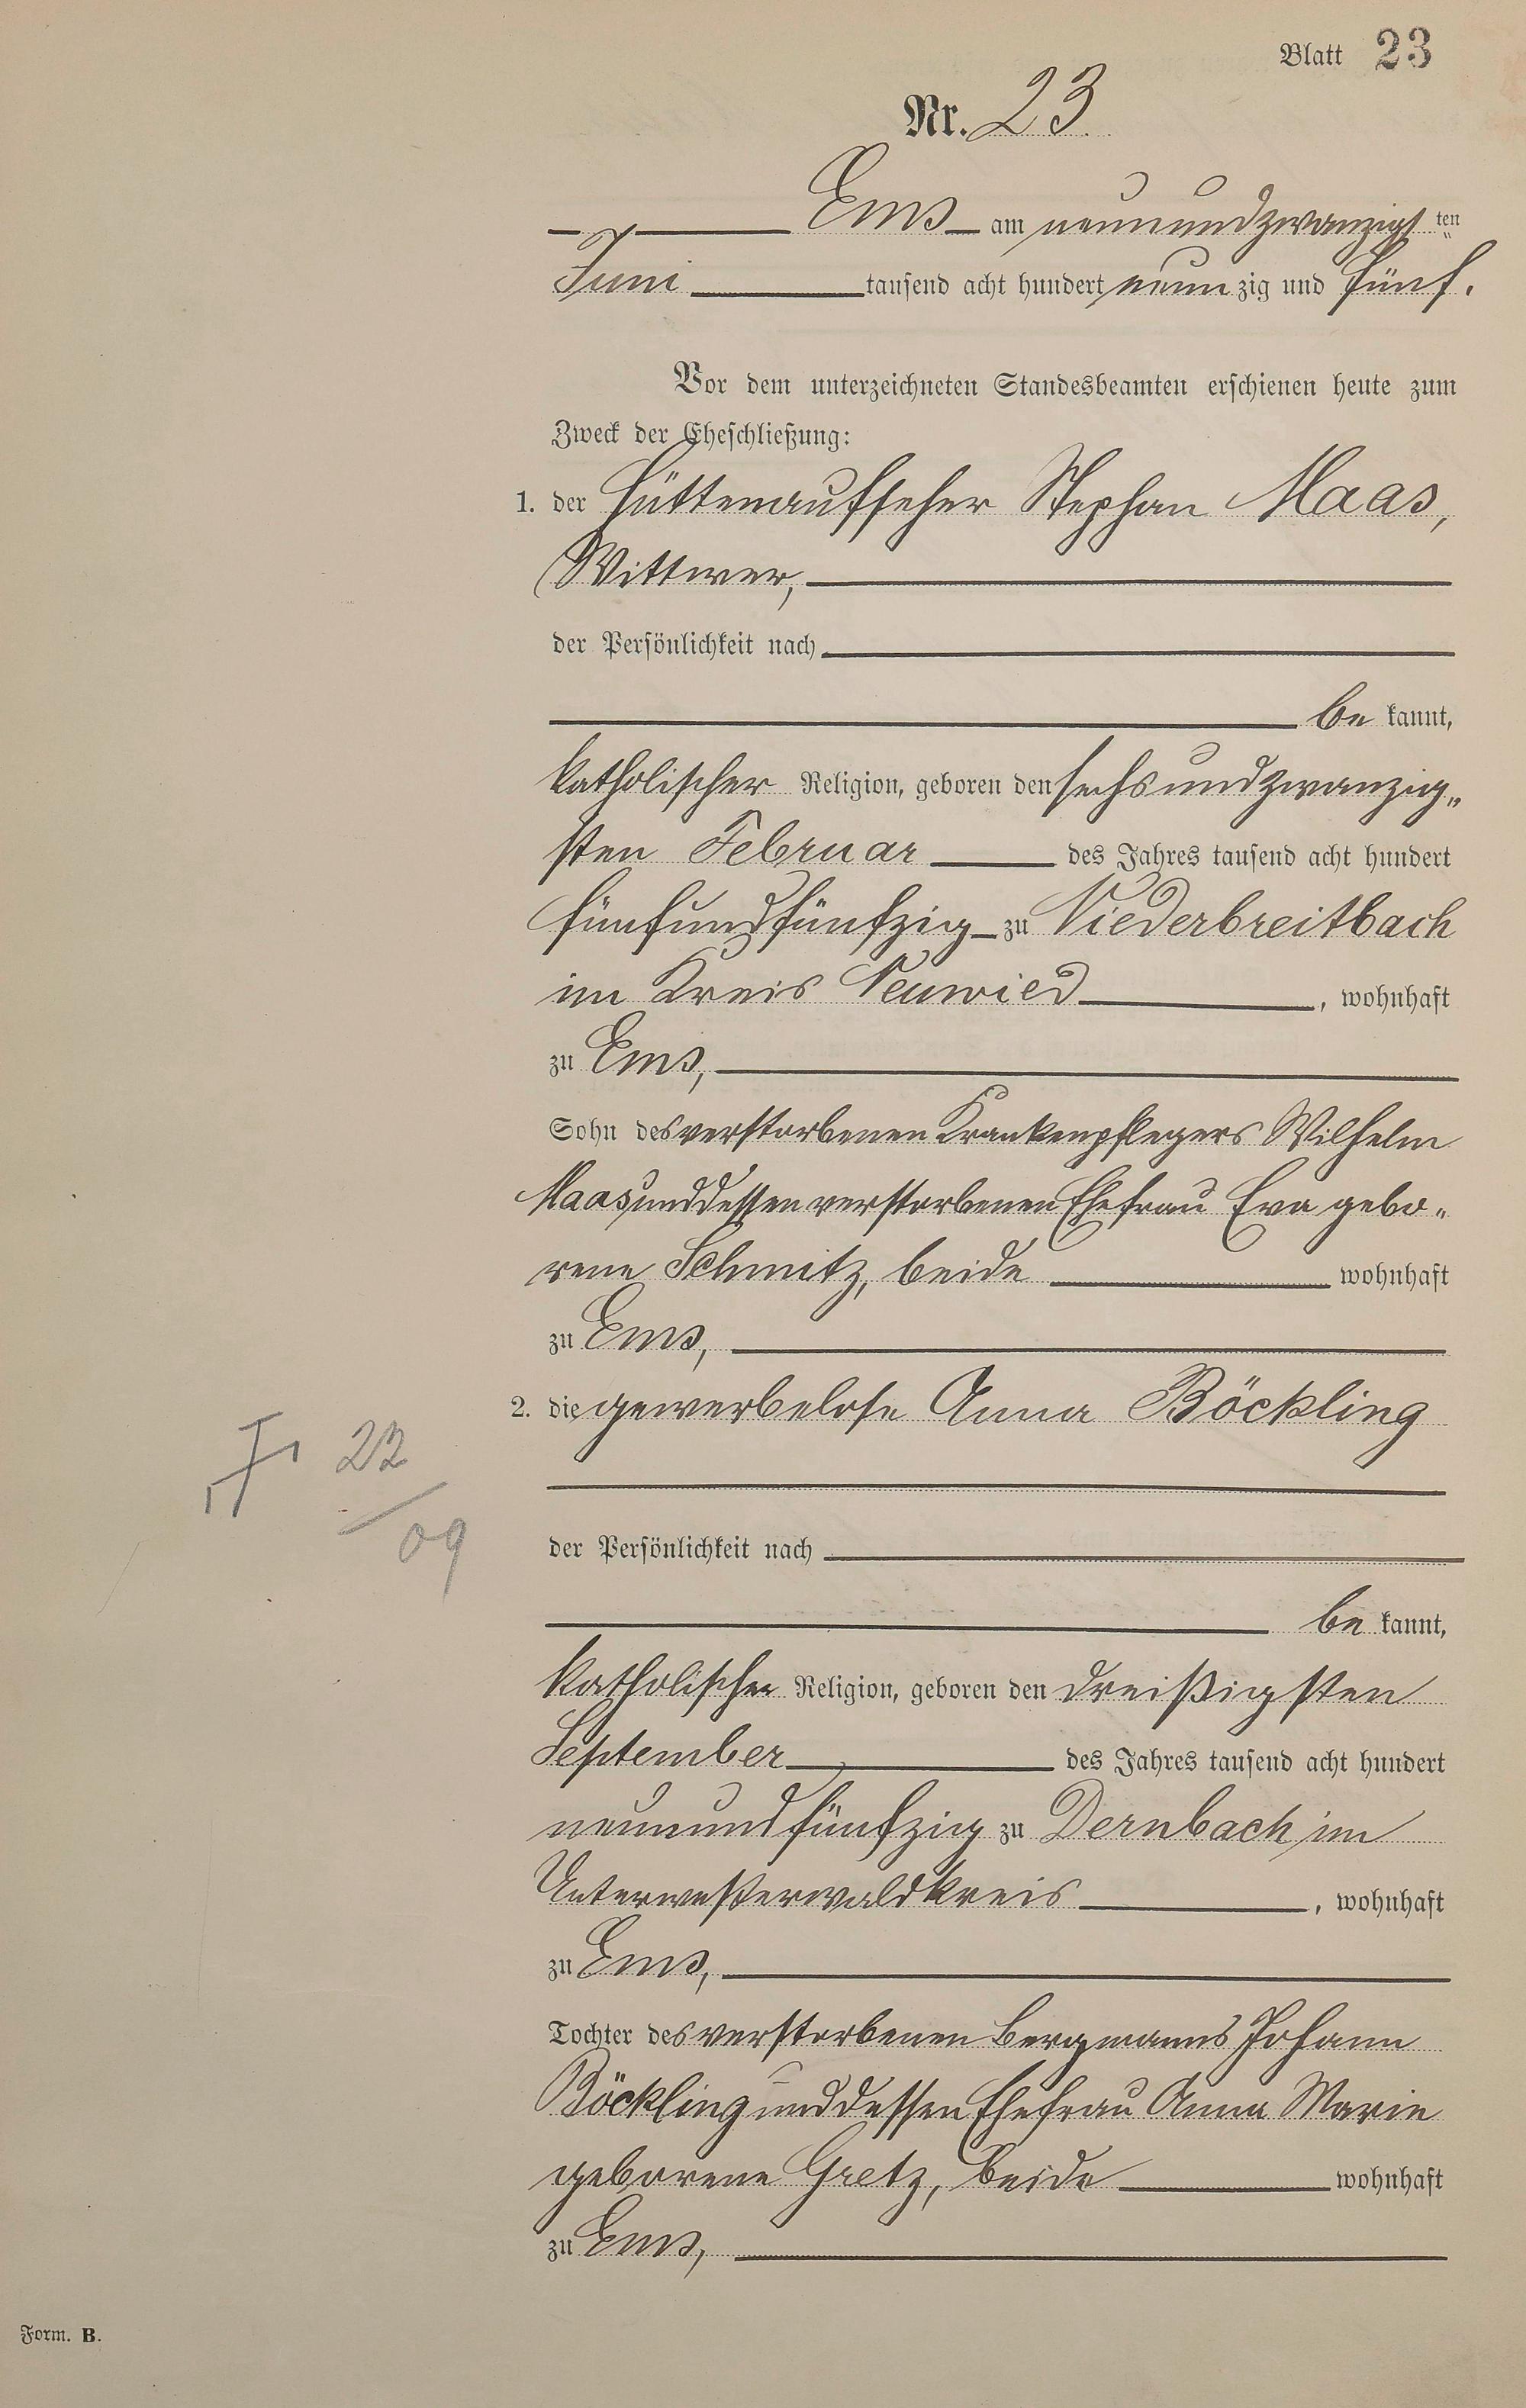 Blatt 23
Nr. 23.
Ems am neunundzwanzigsten
Juni tausend acht hundert neunzig und fünf.
Vor dem unterzeichneten Standesbeamten erschienen heute zum
Zweck der Eheschließung:
1. der Hüttenaufseher Stephan Maas,
Wittwer,
der Persönlichkeit nach
be kannt,
katholischer Religion, geboren den sechsundzwanzig„
sten Februar des Jahres tausend acht hundert
fünfundfünfzig zu Niederbreitbach
im Kreis Neuwied, wohnhaft
zu Ems,
Sohn des verstorbenen Krankenpflegers Wilhelm
Maas und dessen verstorbenen Ehefrau Eva gebo„
rene Schmitz, beide wohnhaft
zu Ems,
2. die gewerbelose Anna Böckling
22
/09
der Persönlichkeit nach
be kannt,
katholischer Religion, geboren den dreißigsten
September des Jahres tausend acht hundert
neunundfünfzig zu Dernbach im
Unterwesterwaldkreis, wohnhaft
zu Ems,
Tochter des verstorbenen Bergmanns Johann
Böckling und dessen Ehefrau Anna Marie
geborene Gretz, beide wohnhaft
zu Ems,
Form. B.